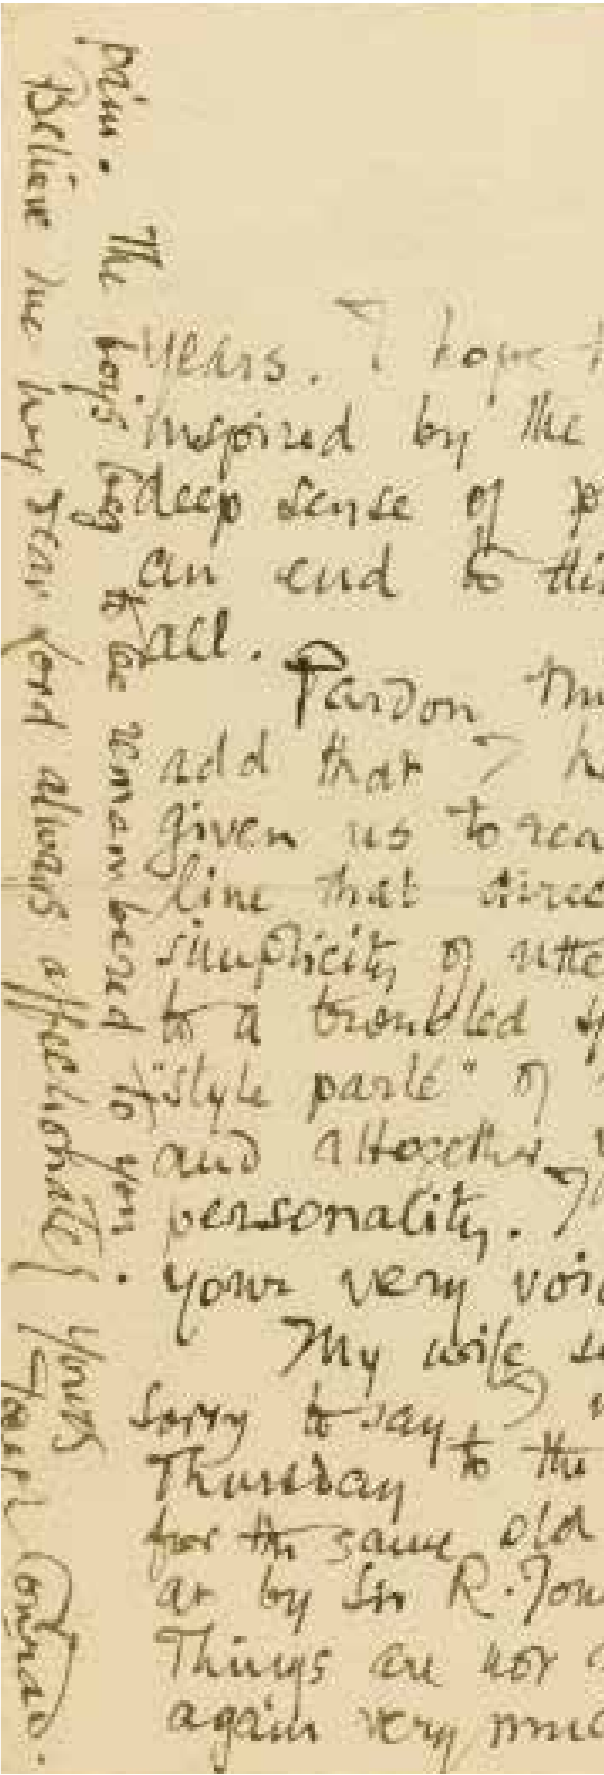 years. I hope t
inspired by the
deep sense of p
an end to thi
all.
Pardon thi
add that I ha
given us to rea
line that direc
simplicity of utte
to a troubled sp
"style parlé" of
and altogether
personality. Th
your very voic
My wife se
sorry to say I
Thursday to the
for the same old
at by Sir R. Jon
Things are not
again very muc
pain. The boys beg to be remembered to you.
Believe me my dear Lord always affectionately yours
Joseph Conrad.